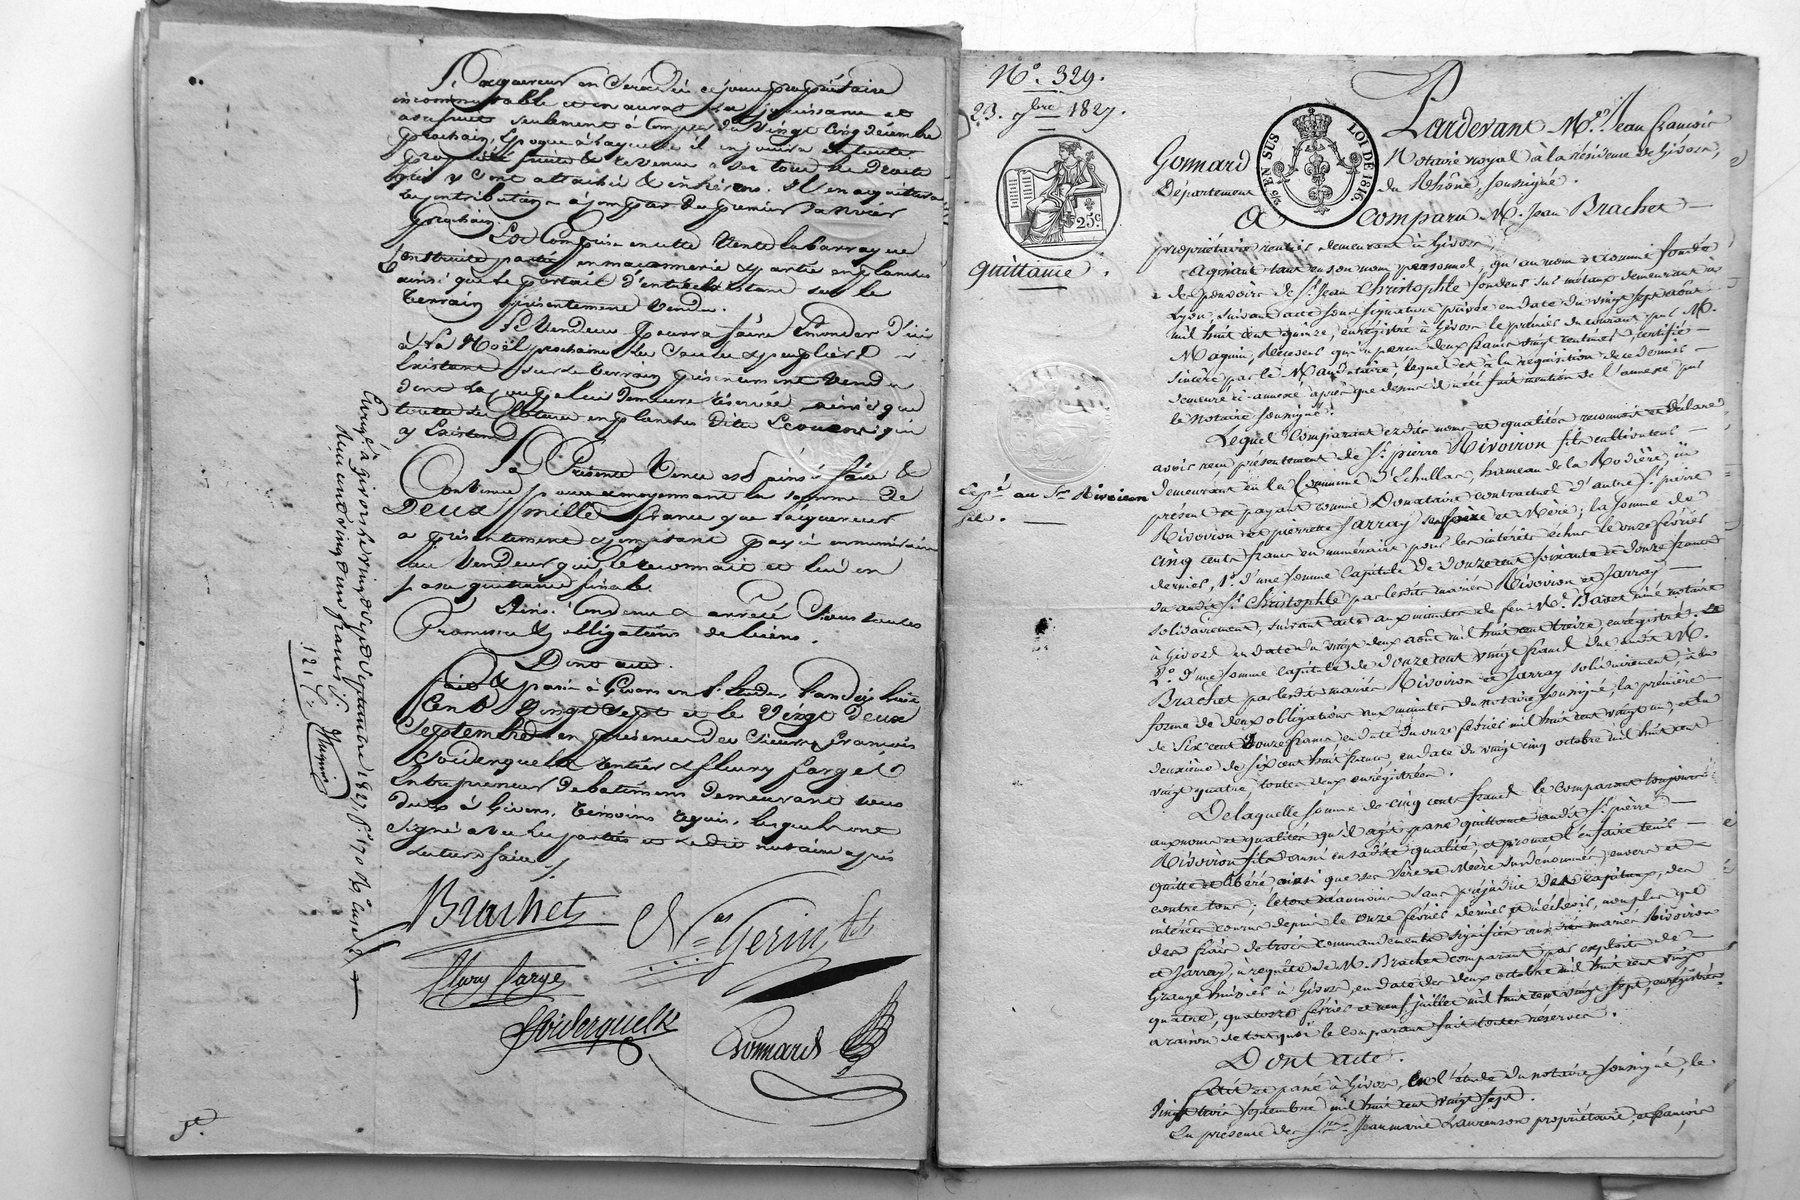 L'acquereur en sera dès ce jour propriétaire
incommutable et en aura la jouissance et
seulement à compter du Vingt Cinq décembre
prochain, époque à laquelle il en jouira en toute
propriété fruits & revenus avec tous les droits
qui y sont attachés & inhérens. Il en acquittera
les contributions à compter du premier Janvier
prochain.
Est comprise en cette Vente la barraque
construite partie en maçonnerie & partie en planches
ainsi que le portail d'entrée existant sur le
terrain présentement Vendu.
Le Vendeur pourra faire émonder d'ici
à la Noël prochaine les saules & peupliers
existant sur le terrain présentement Vendu
dont la coupe lui demeure réservée, ainsi que
toute la clôture en planches dite
y existant.
La Présente Vente est ainsi faite &
Convenue pour & moyennant la somme de
Deux mille francs que l'acquereur
a présentement & comptant payée en numéraire
au Vendeur qui le reconnait et lui en
passe quittance finale.
Ainsi Convenu & arrêté Sous toutes
Promesses & obligations de biens.
Dont acte.
Fait & passé à Givors en l'Etude, l'an dix huit
Cent Vingt Sept et le Vingt deux
Septembre en présence des Sieurs François
Souderquelk rentier & fleury farge
Entrepreneur de batimens demeurant tous
deux à Givors, témoins requis, lesquels ont
signé avec les parties et le dit notaire après
lecture faite /.
Brachet
Nas Gerin fils
fleury farge
Souderquelk
Gonnard
Enregé à givors le vingt sept Septembre 1827, fo. 170 Ro. Case
Reçu cent vingt un francs
121
N° 329.
23. 7bre 1827.
25c
quittance.
Expé au Sr. Rivoiron
fils.
Pardevant Me. Jean François
Gonnard Notaire royal à la résidence de Givors,
Département du Rhône soussigné.
1/6 EN SUS LOI DE 1816
A comparu M. Jean Brachet
propriétaire rentier demeurant à Givors,
Agissant tant en son nom personnel, qu'au nom & comme fondé
de pouvoirs de Sr. Jean Christophle fondeur sur métaux demeurant à
Lyon, suivant acte sous signature privée en date du vingt sept août
mil huit cent quinze, enregistré à Givors le premier du courant par M.
Maguin, Receveur qui a perçu deux francs vingt centimes, certifié
sincère par le Mandataire, lequel est à la réquisition de ce dernier
demeuré ci-annexé après que dessus il a été fait mention de l'annexe par
le notaire soussigné.
Lequel comparant ezdits noms et qualités reconnoit et déclare
avoir reçu présentement de Sr. pierre Rivoiron fils cultivateur
demeurant en la Commune d'Echallas, hameau de la Rodière, ici
présent et payant comme Donataire contractuel d'autre Sr. pierre
Rivoiron et pierrette Jarray ses père et Mère; la somme de
cinq cents francs en numéraire pour les intérêts échus le onze février
dernier, 1°. d'une somme capitale de douze cent soixante et douze francs
du audit Sr. Christophle par lesdits mariés Rivoiron et Jarray
solidairement, suivant acte aux minutes de feu Me. Bavet vivant notaire
à Givors en date du vingt deux août mil huit cent treize enregistré; Et
2°. d'une somme capitale de douze cent vingt francs due audit M.
Brachet par lesdits mariés Rivoiron et Jarray solidairement, à la
forme de deux obligations aux minutes du notaire soussigné, la première
de six cent douze francs en date du onze février mil huit cent vingt un, et la
deuxième de six cent huit francs, en date du vingt cinq octobre mil huit cent
vingt quatre toutes deux enregistrées.
De laquelle somme de cinq cents francs le comparant toujours
aux noms et qualités qu'il agit passe quittance audit Sr. pierre
Rivoiron fils aussi en sadite qualité, et promet l'en faire tenir
quitte et libéré, ainsi que ses Père et Mère susdénommés envers et
contre tous; le tout néanmoins sans préjudice des capitaux, des
intérêts courus depuis le onze février dernier & à échoir, non plus que
des frais de trois commandements signifiés aux dits mariés Rivoiron
et Jarray, à requête de M. Brachet comparant par exploits de
Grange huissier à Givors, en date des deux octobre mil huit cent vingt
quatre, quatorze février et neuf juillet mil huit cent vingt sept, enregistrés
a raison de tout quoi le comparant fait toutes réserves.
Dont acte.
Fait et passé à Givors, En l'étude du notaire soussigné, le
vingt trois Septembre mil huit cent vingt sept.
En présence de Srs. Jean marie Laurenson propriétaire, et françois